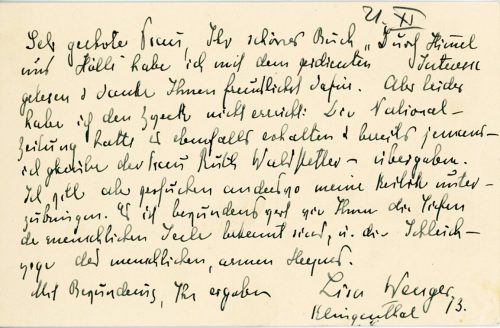 21. XI
Sehr geehrte Frau, Ihr schönes Buch „Durch Himmel
und Hölle habe ich mit dem gespannten Interesse
gelesen & danke Ihnen freundlichst dafür. Aber leider
habe ich den Zweck nicht erreicht: Die National-
zeitung hatte es ebenfalls erhalten & bereits jemand –
ich glaube der Frau Ruth Waldstetter – übergeben.
Ich will aber versuchen anderswo meine Kritik unter-
zubringen. Es ist bewundenswert wie Ihnen die Tiefen
der menschlichen Seele bekannt sind, u. die Schleich-
wege des menschlichen, armen Herzens.
Mit Bewunderung, Ihr ergeben
Lisa Wenger
Klingenthal 13.